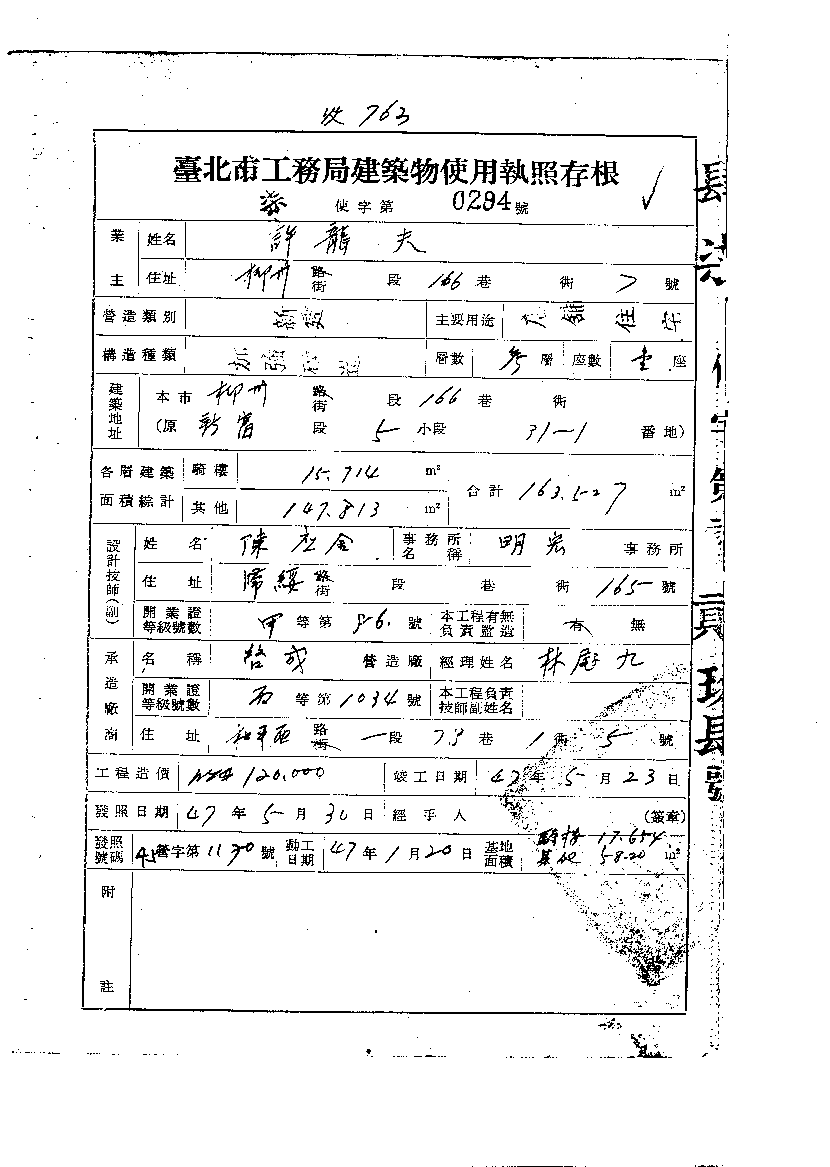 收 763
臺北市工務局建築物使用執照存根
柒 使字第 0294 號
業主 姓名 許龍夫
住址 柳州 路街 段 166 巷 衖 7 號
營造類別 新建 主要用途 店舖住宅
構造種類 加強磚造 層數 參 層 座數 壹 座
建築地址 本市 柳州 路街 段 166 巷 衖
(原 新富 段 5 小段 31-1 番地)
各層建築面積綜計 騎樓 15.714 m² 合計 163.527 m²
其他 147.813 m²
設計技師(副) 姓名 陳 金 事務所名稱 明宏 事務所
住址 歸綏 路街 段 巷 衖 165 號
開業證等級號數 甲 等第 86 號 本工程有無負責監造 有 無
承造廠商 名稱 啓成 營造廠 經理姓名 林 九
開業證等級號數 丙 等第 1034 號 本工程負責技師副姓名
住址 和平西 路街 一 段 73 巷 1 衖 5 號
工程造價 120.000 竣工日期 47 年 5 月 23 日
發照日期 47 年 5 月 30 日 經手人 (簽章)
發照號碼 45 營字第 1170 號 動工日期 47 年 1 月 20 日 基地面積 騎樓 17.654 基地 58.20 m²
附註